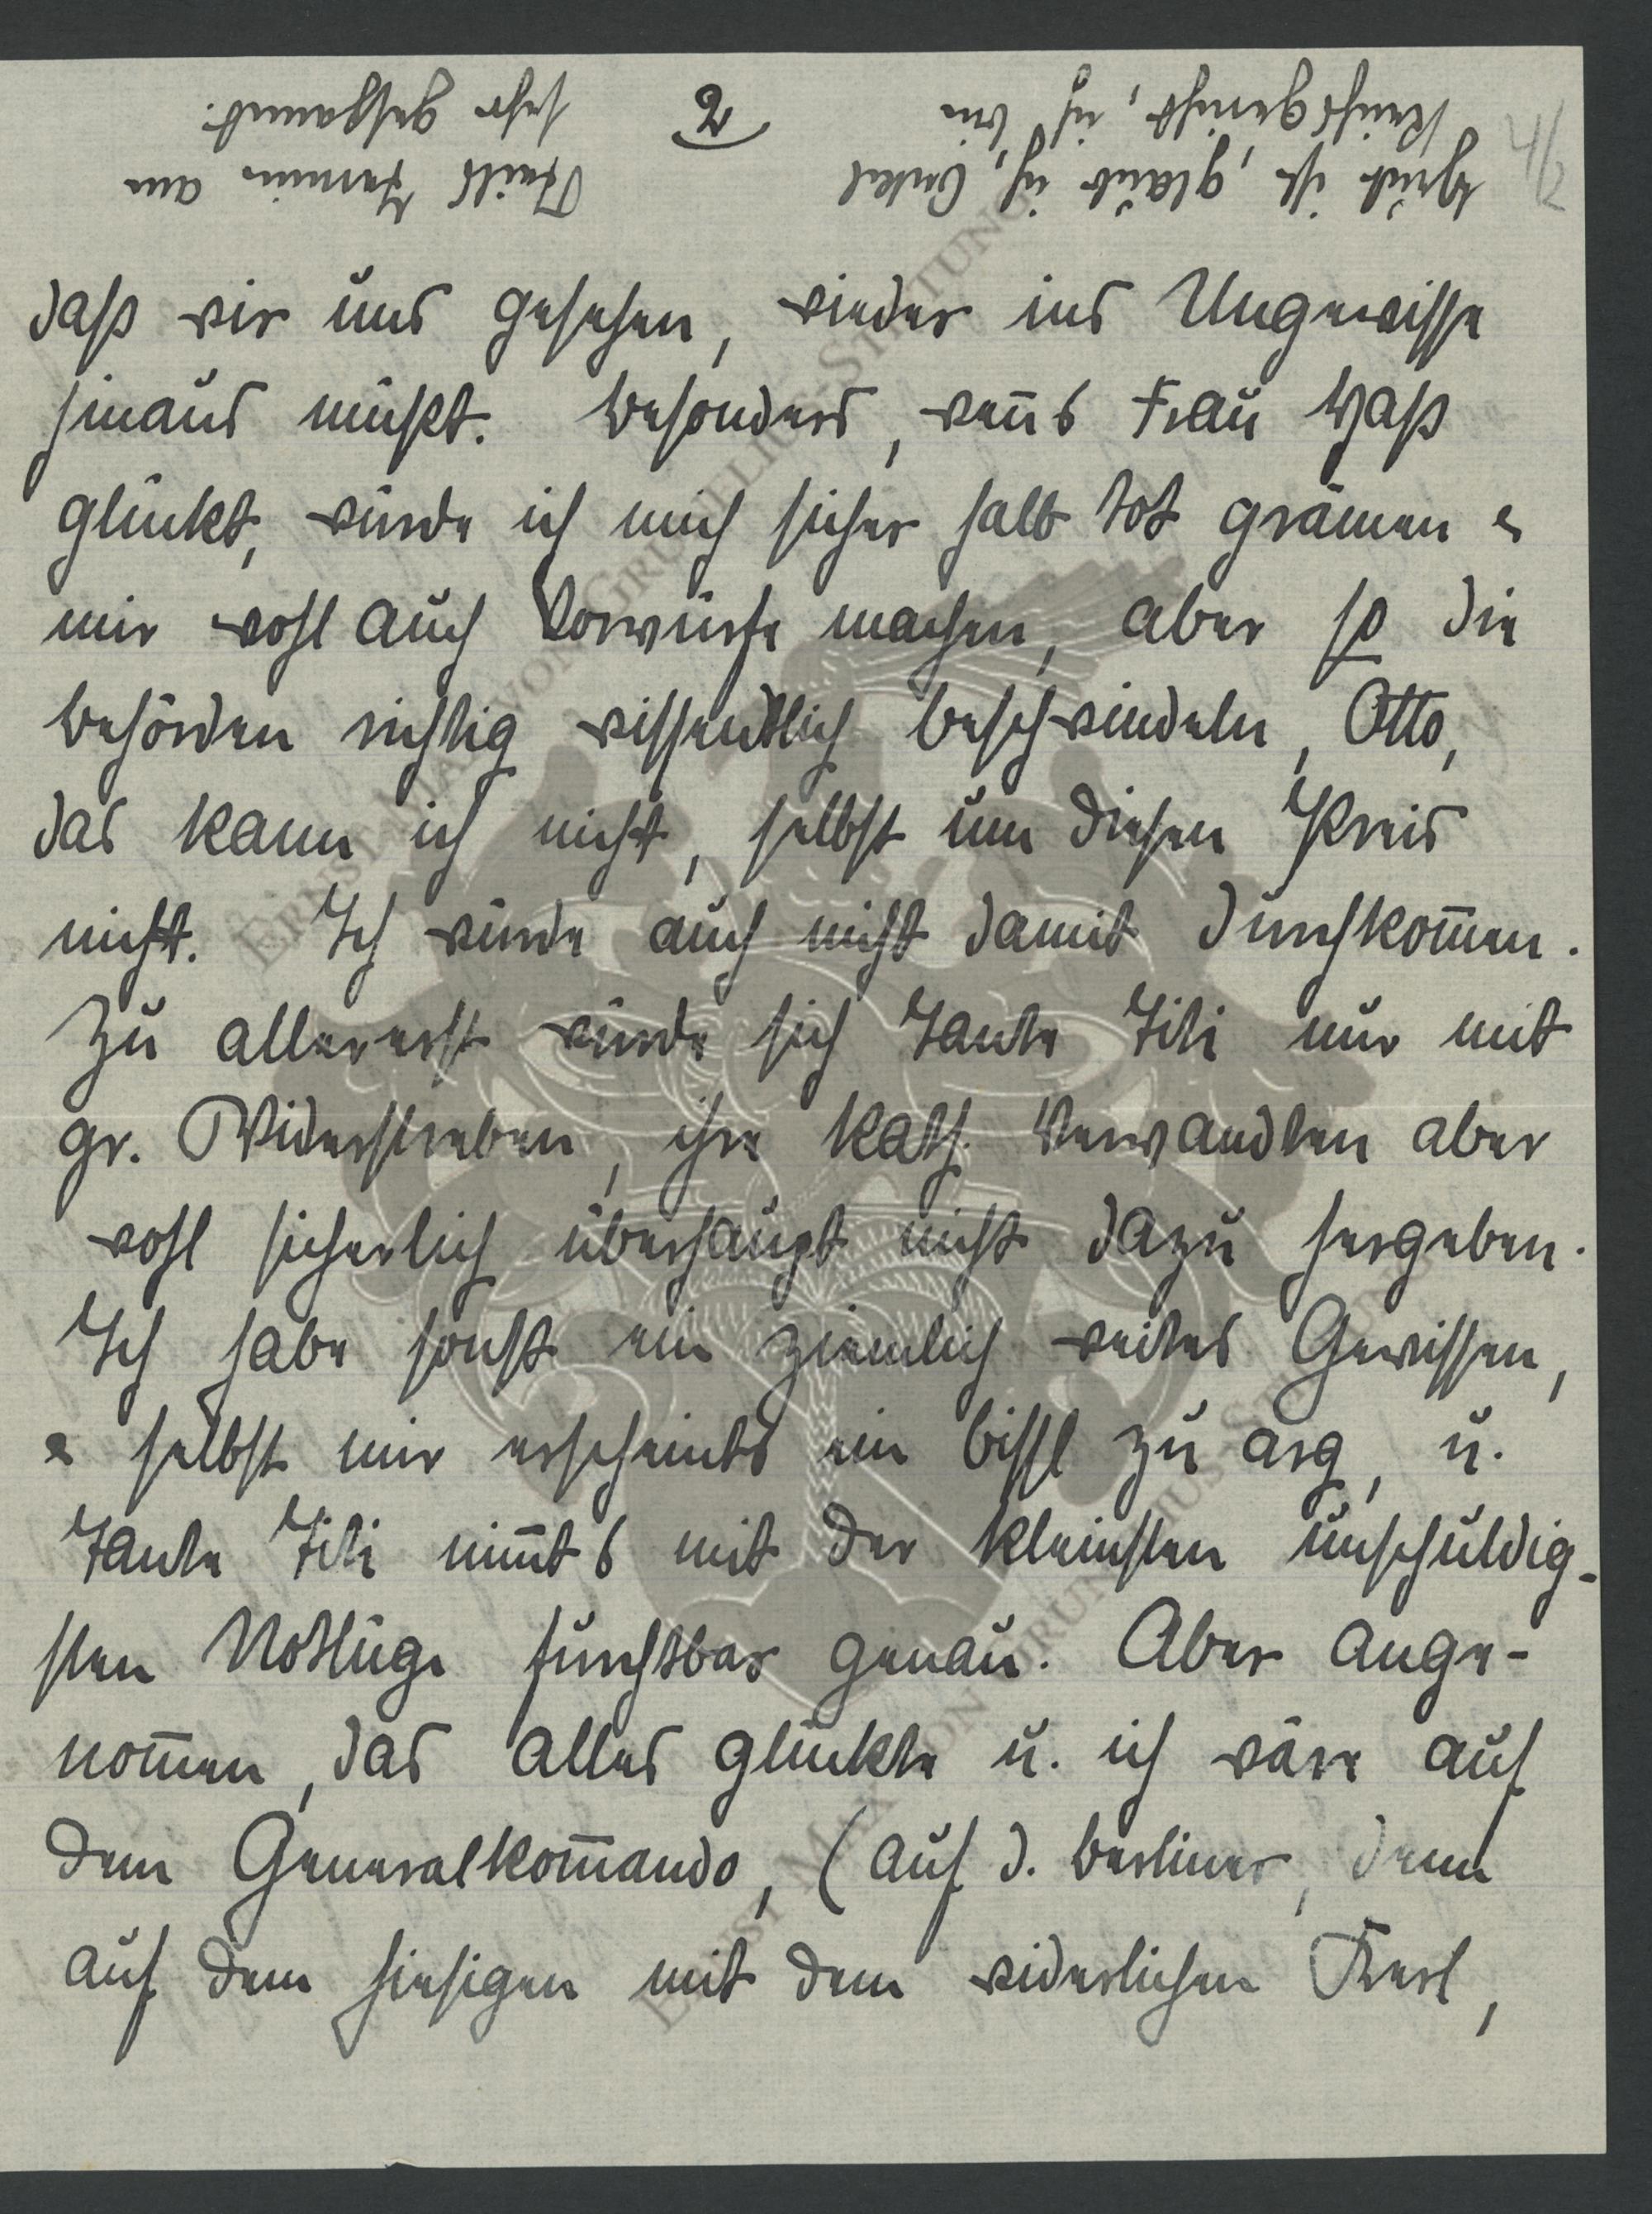 Heute ist, glaub ich, Onkel Theils Termin am
Reichsgericht, ich bin sehr gespannt.
2
4/2
daß wir uns gesehen, wieder ins Ungewisse
hinaus müßt. Besonders, wenns Frau Haß
glückt, würde ich mich sicher halb tot grämen &
mir wohl auch Vorwürfe machen, aber so die
Behörden richtig wissentlich beschwindeln, Otto,
das kann ich nicht, selbst um diesen Preis
nicht. Ich würde auch nicht damit durchkom̅en.
Zu allererst würde sich Tante Titi nur mit
gr. Widerstreben, ihre kath. Verwandten aber
wohl sicherlich überhaupt nicht dazu hergeben.
Ich habe sonst ein ziemlich weites Gewissen,
& selbst mir erscheints ein bissl zu arg, u.
Tante Titi nim̅ts mit der kleinsten unschuldig-
sten Notlüge furchtbar genau. Aber ange-
nom̅en, das alles glückte u. ich wäre auf
dem Generalkom̅ando, (auf d. Berliner, denn
auf dem hiesigen mit dem widerlichen Kerl,
ERNST MAX VON GRUNELIUS-STIFTUNG
ERNST MAX VON GRUNELIUS-STIFTUNG